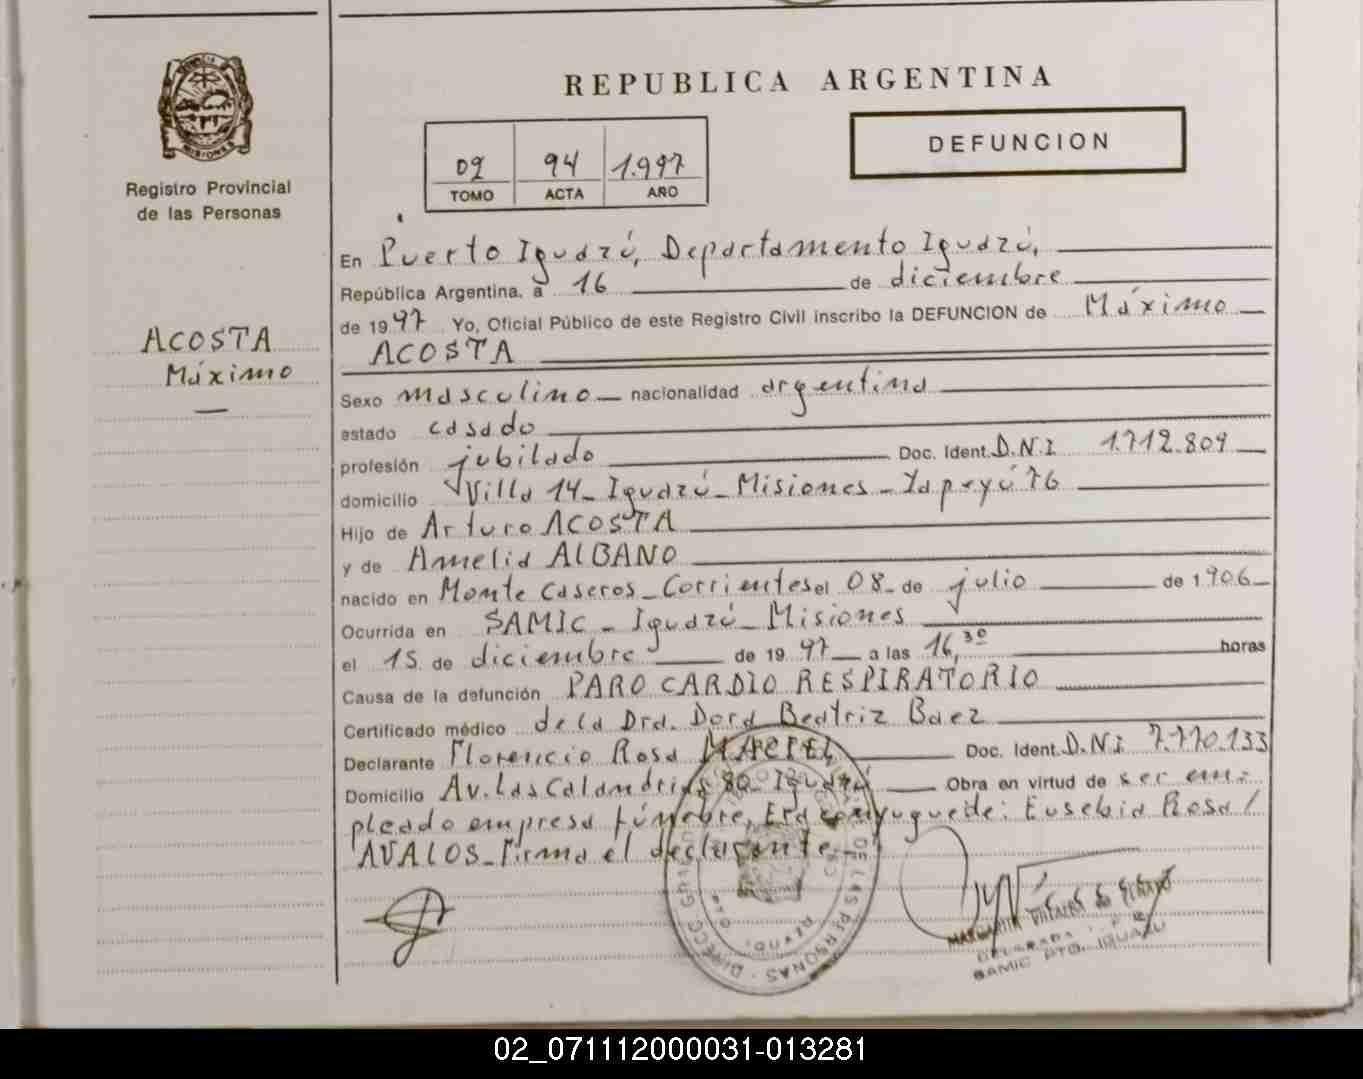 REPUBLICA ARGENTINA
DEFUNCION
02 94 1.997
TOMO ACTA AÑO
MISIONES
Registro Provincial
de las Personas
ACOSTA
Máximo
En Puerto Iguazú, Departamento Iguazú,
República Argentina, a 16 de diciembre
de 1997 Yo, Oficial Público de este Registro Civil inscribo la DEFUNCION de Máximo
ACOSTA
Sexo masculino nacionalidad argentina
estado casado
profesión jubilado Doc. Ident. D.N.I 1.712.809
domicilio Villa 14 - Iguazú - Misiones - Yapeyú 76
Hijo de Arturo ACOSTA
y de Amelia ALBANO
nacido en Monte Caseros - Corrientes el 08 de julio de 1906
Ocurrida en SAMIC - Iguazú - Misiones
el 15 de diciembre de 1997 a las 16,30 horas
Causa de la defunción PARO CARDIO RESPIRATORIO
Certificado médico de la Dra. Dora Beatriz Baez
Declarante Florencio Rosa MACIEL Doc. Ident. D.N.I 7.770.133
Domicilio Av. Las Calandrias 80 - Iguazú Obra en virtud de ser em-
pleado empresa fúnebre, Era conyuguede: Eusebia Rosa /
AVALOS - Firma el declarante.
DE LAS PERSONAS
MARGARITA
SAMIC PTO. IGUAZU
02_071112000031-013281